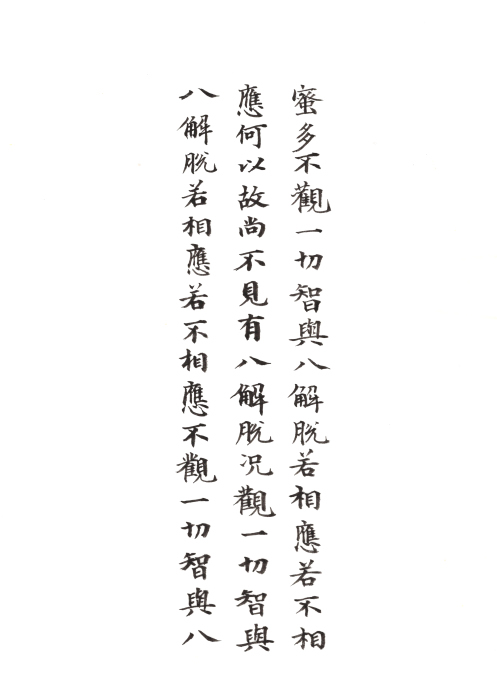 蜜多不觀一切智與八解脫若相應若不相
應何以故尚不見有八解脫况觀一切智與
八解脫若相應若不相應不觀一切智與八